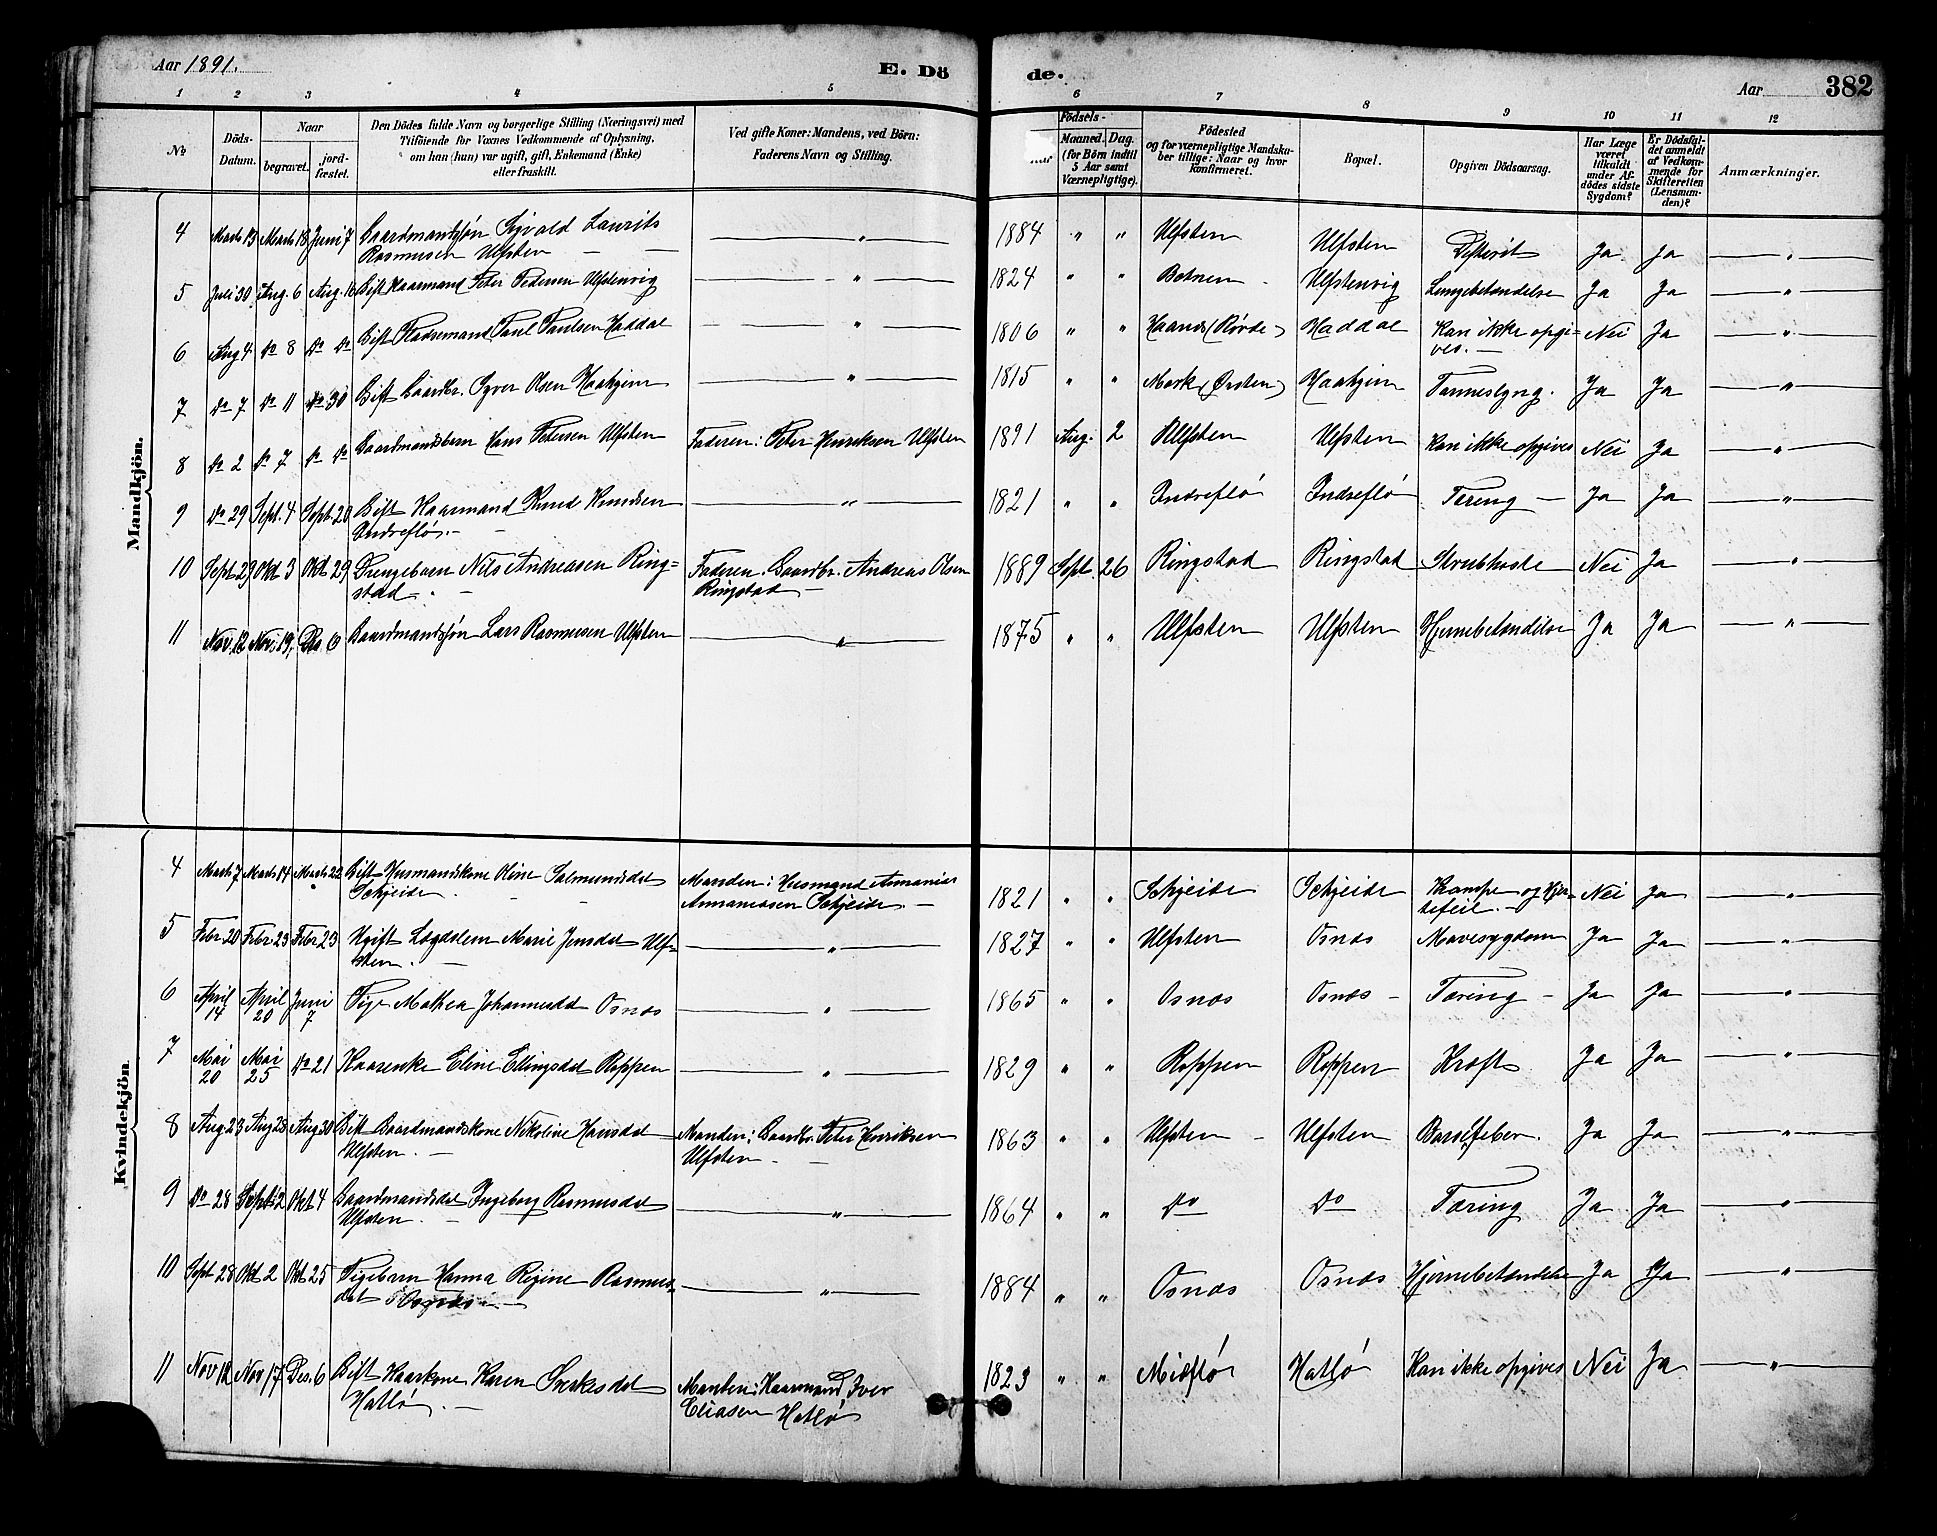 Aar 1891. E. Dö de. Aar 382
1 2 3 4 5 6 7 8 9 10 11 12
№
Döds-
Datum.
Naar
begravet.
jord-
fæstet.
Den Dödes fulde Navn og borgerlige Stilling (Næringsvei) med
Tilföiende for Voxnes Vedkommende af Oplysning,
om han (hun) var ugift, gift, Enkemand (Enke)
eller fraskilt.
Ved gifte Koner: Mandens, ved Börn:
Faderens Navn og Stilling.
Födsels-
Maaned. Dag.
(for Börn indtil
5 Aar samt
Værnepligtige).
Födested
og for værnepligtige Mandska-
ber tillige: Naar og hvor
konfirmeret.
Bopæl.
Opgiven Dödsaarsag.
Har Læge
været
tilkaldt
under Af-
dödes sidste
Sygdom?
Er Dödsfal-
det anmeldt
af Vedkom-
mende for
Skifteretten
(Lensman-
den)?
Anmærkninger.
Mandkjön.
4 Marts 13 Marts 18 Juni 7 Gaardmandssøn Sigvald Laurits " 1884 " " Ulfsten Ulfsten Difterit Ja Ja "
Rasmusen Ulfsten
5 Juli 30 Aug. 6 Aug. 16 Gift Kaarmand Peter Pedersen Ulfstenvig " 1824 " " Botnen Ulfstenvig Lungebetændelse Ja Ja "
6 Aug 4 Do 8 Do Do Gift Fladsemand Paul Paulsen Haddal " 1806 " " Haand (Rövde) Haddal Kan ikke opgi- Nei Ja "
ves.
7 Do 7 Do 11 Do 30 Gift Gaardbr. Syver Olsen Haakjem " 1815 " " Mork (Ørsten) Haakjem Tarmeslyng. Ja Ja "
8 Do 2 Do 7 Do Do Gaardmandsbarn Hans Petersen Ulfsten Faderen: Peter Henriksen Ulfsten 1891 Aug. 2 Ulfsten Ulfsten Kan ikke opgives Nei Ja "
9 Do 29 Sept. 4 Sept. 20 Gift Kaarmand Knud Knudsen " 1821 " " Indreflö Indreflö Tæring Ja Ja "
Indreflö.
10 Sept 29 Okt 3 Okt 29 Drengebarn Nils Andreasen Ring- Faderen Gaardbr. Andreas Olsen 1889 Sept. 26 Ringstad Ringstad Strubhoste Nei Ja "
stad Ringstad
11 Nov. 12 Nov. 19, Des 6 Gaardmandssøn Lars Rasmusen Ulfsten " 1875 " " Ulfsten Ulfsten Hjernebetændelse Ja Ja "
Kvindekjön
4 Marts 7 Marts 14 Marts 22 Gift Husmandskone Oline Salmundsdat Manden: Husmand Annanias 1821 " " Schjeide Schjeide Krampe og Hjer- Nei Ja "
Schjeide Annaniasen Schjeide. tefeil.
5 Febr 20 Febr 23 Febr 23 Ugift Lægdslem Marie Jensdat Ulf- " 1827 " " Ulfsten Osnæs Mavesygdom Ja Ja "
sten.
6 April 14 April 20 Juni 7 Pige Mathea Johannesdat Osnæs " 1865 " " Osnæs Osnæs Tæring Ja Ja "
7 Mai 20 Mai 25 Do 21 Kaarenke Eline Ellingsdat Roppen " 1829 " " Roppen Roppen Kræft Ja Ja "
8 Aug 23 Aug 28 Aug 30 Gift Gaardmandskone Nikoline Hansdat Manden: Gaardbr. Peter Henriksen 1863 " " Ulfsten Ulfsten Barselfeber. Ja Ja "
Ulfsten. Ulfsten.
9 Do 28 Sept. 2 Okt 4 Gaardmandsdat Ingeborg Rasmusdat " 1864 " " Do Do Tæring Ja Ja "
Ulfsten.
10 Sept 28 Okt 2 Okt 25 Pigebarn Hanna Regine Rasmus- " 1884 " " Osnæs Osnæs Hjernebetændelse Ja Ja "
dat Osnæs
11 Nov 12 Nov 17 Des. 6 Gift Kaarkone Karen Sverkesdat Manden: Kaarmand Iver 1823 " " Midflö Hatlö Kan ikke opgives Nei Ja "
Hatlö. Eliasen Hatlö